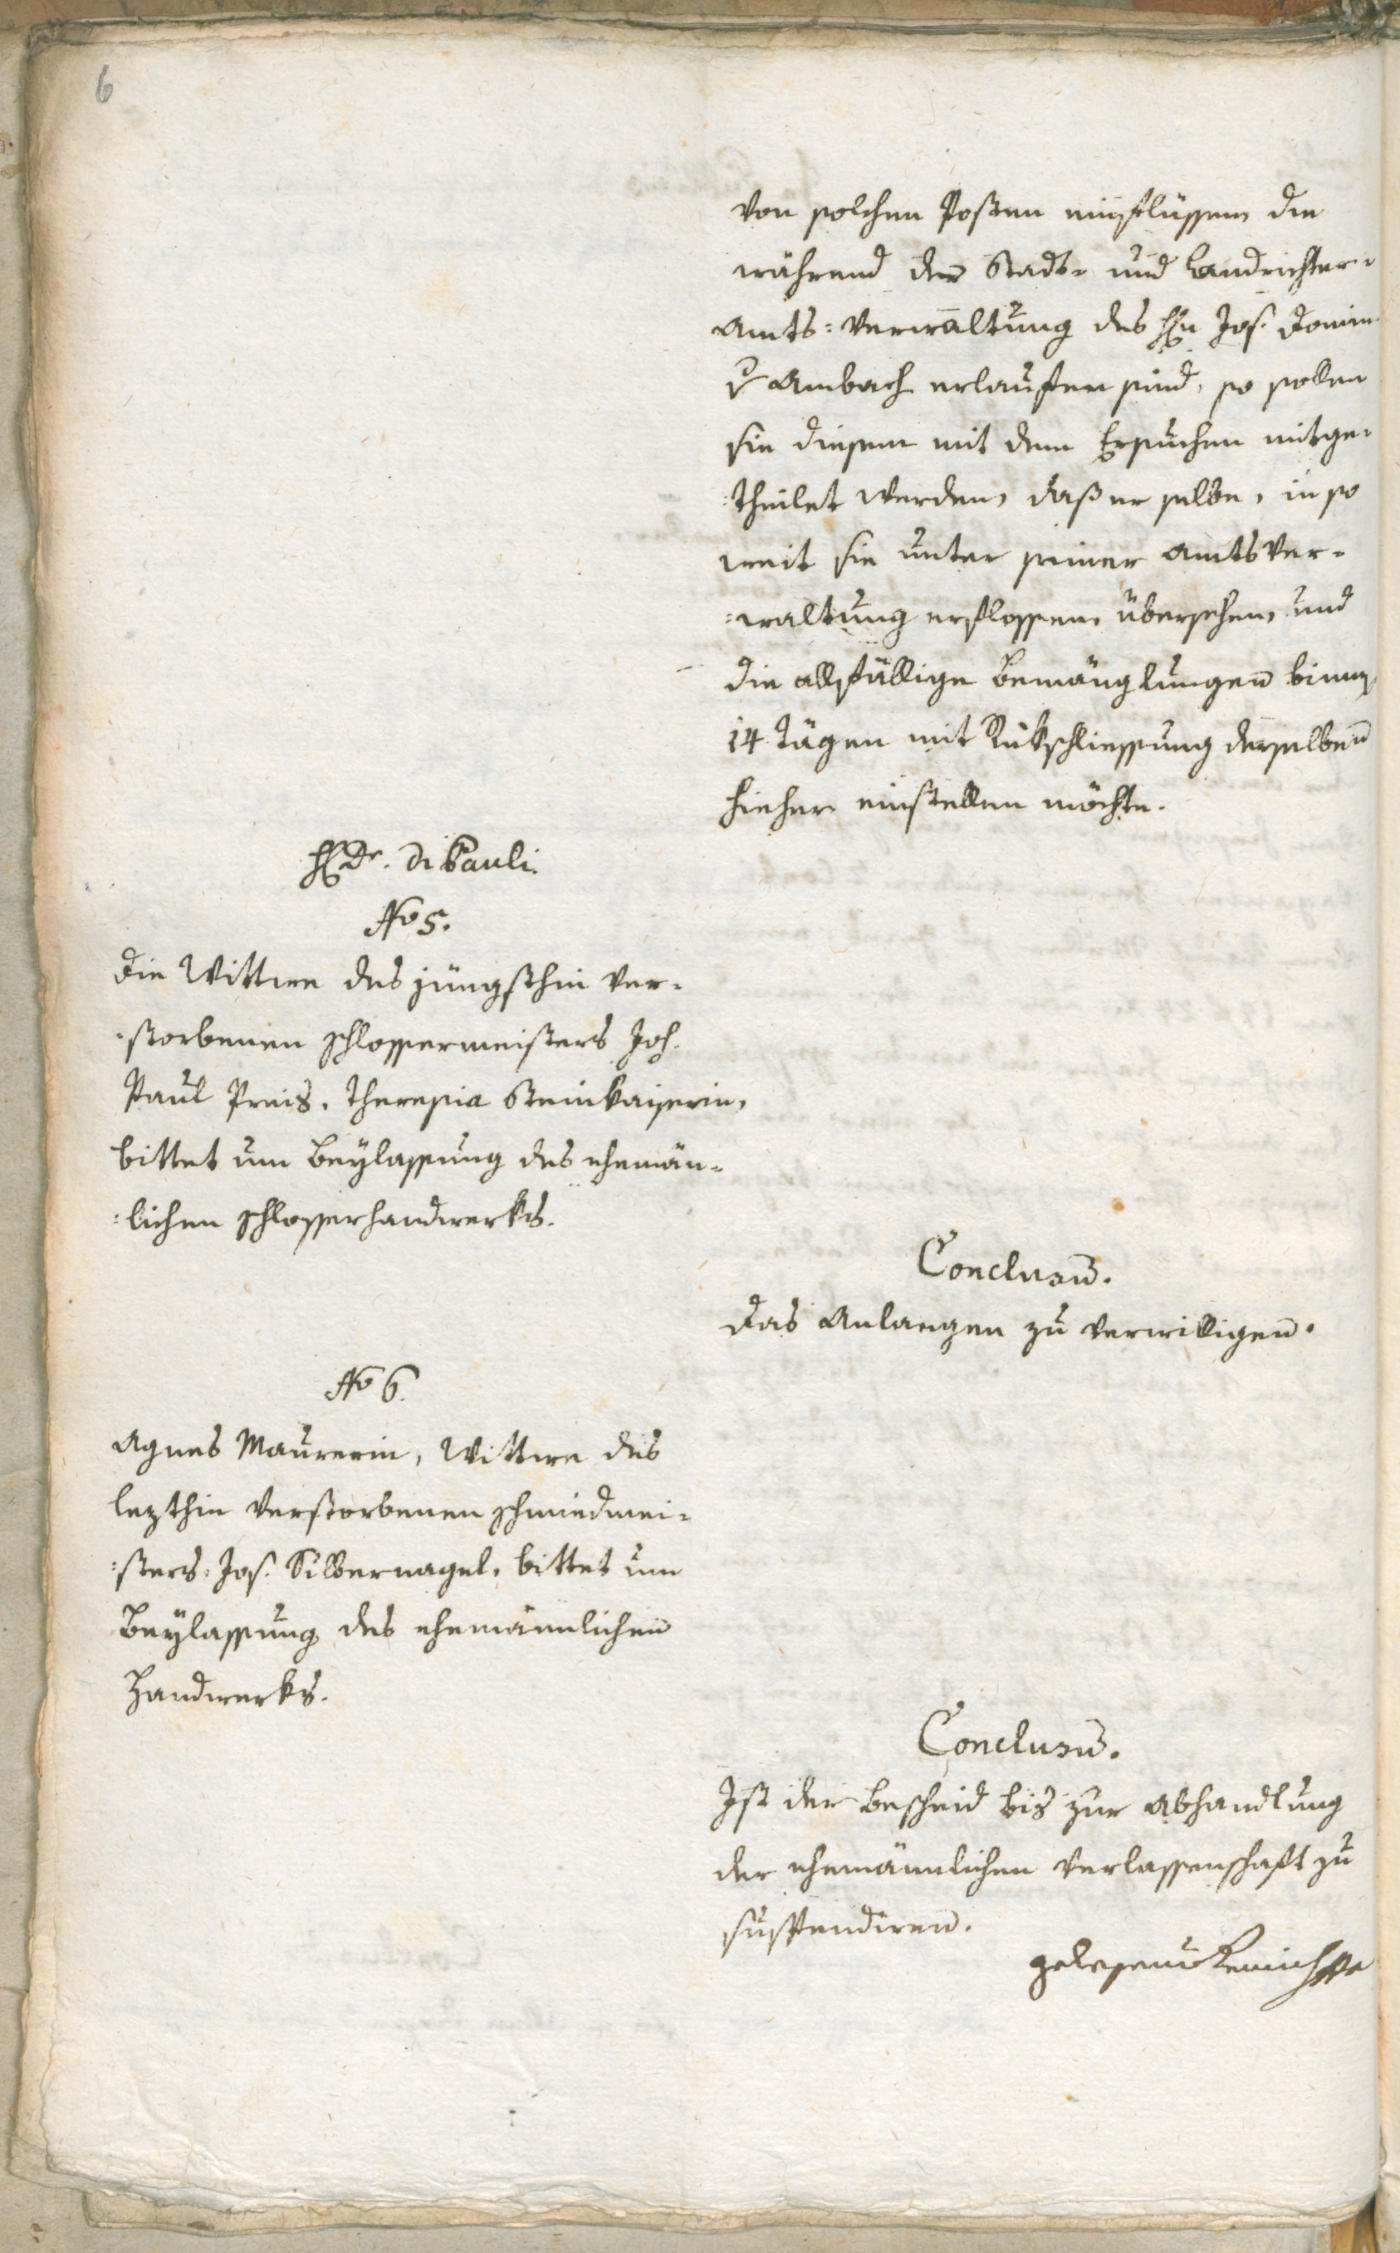 6
von solchen Posten einflüssen, die
während der Stadt- und Landrichter-
Amts-Verwaltung des Hn Jos. Domin.
v Ambach erlaufen sind, so sollen
sie diesem mit dem Ersuchen mitge-
:theilet werden, daß er selbe, in so
weit sie unter seiner Amtsver-
:waltung erflossen, übersehen, und
die allfällige Bemänglungen binnen
14 Tägen mit Rükschliessung derselben
hieher einstellen möchte.
H Dr. Di Pauli.
No 5.
Die Wittwe des jüngsthin ver-
:storbenen Schlossermeisters Joh.
Paul Preis, Theresia Steinkaiserin,
bittet um Beylassung des ehemän-
:lichen Schlosserhandwerks.
Conclusum.
Das Anlangen zu verwilligen.
No 6.
Agnes Maurerin, Wittwe des
lezthin verstorbenen Schmiedmei-
:sters Jos. Silbernagel, bittet um
Beylassung des ehemännlichen
Handwerks.
Conclusum.
Ist der Bescheid bis zur Abhandlung
der ehemännlichen Verlassenschaft zu
suspendiren.
gelesen